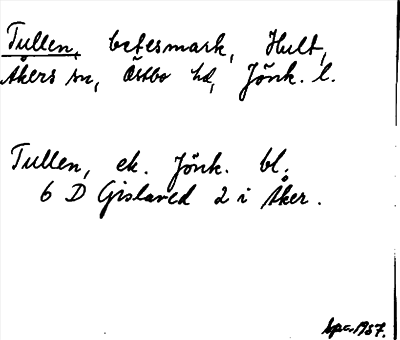 Tullen, betesmark, Hult,
Åkers sn, Östbo hd, Jönk. l.
Tullen, ek. Jönk. bl.
6 D Gislaved 2 i Åker.
1957.